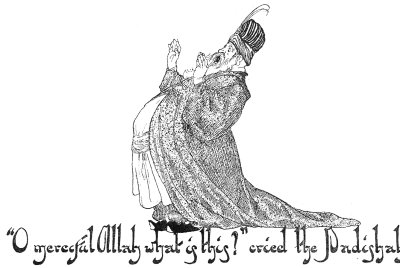 "O merciful Allah what is this?" cried the Padishah